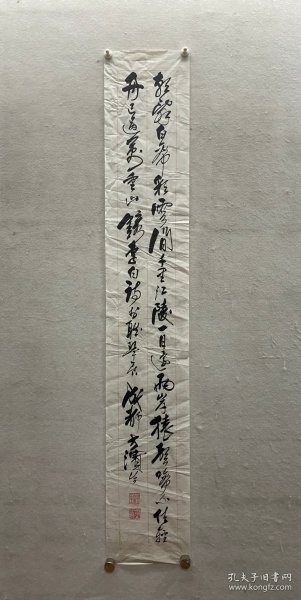 朝辞白帝彩云间千里江陵一日还两岸猿声啼不住轻
舟已过万重山 录李白诗
孔夫子旧书网
www.kongfz.com